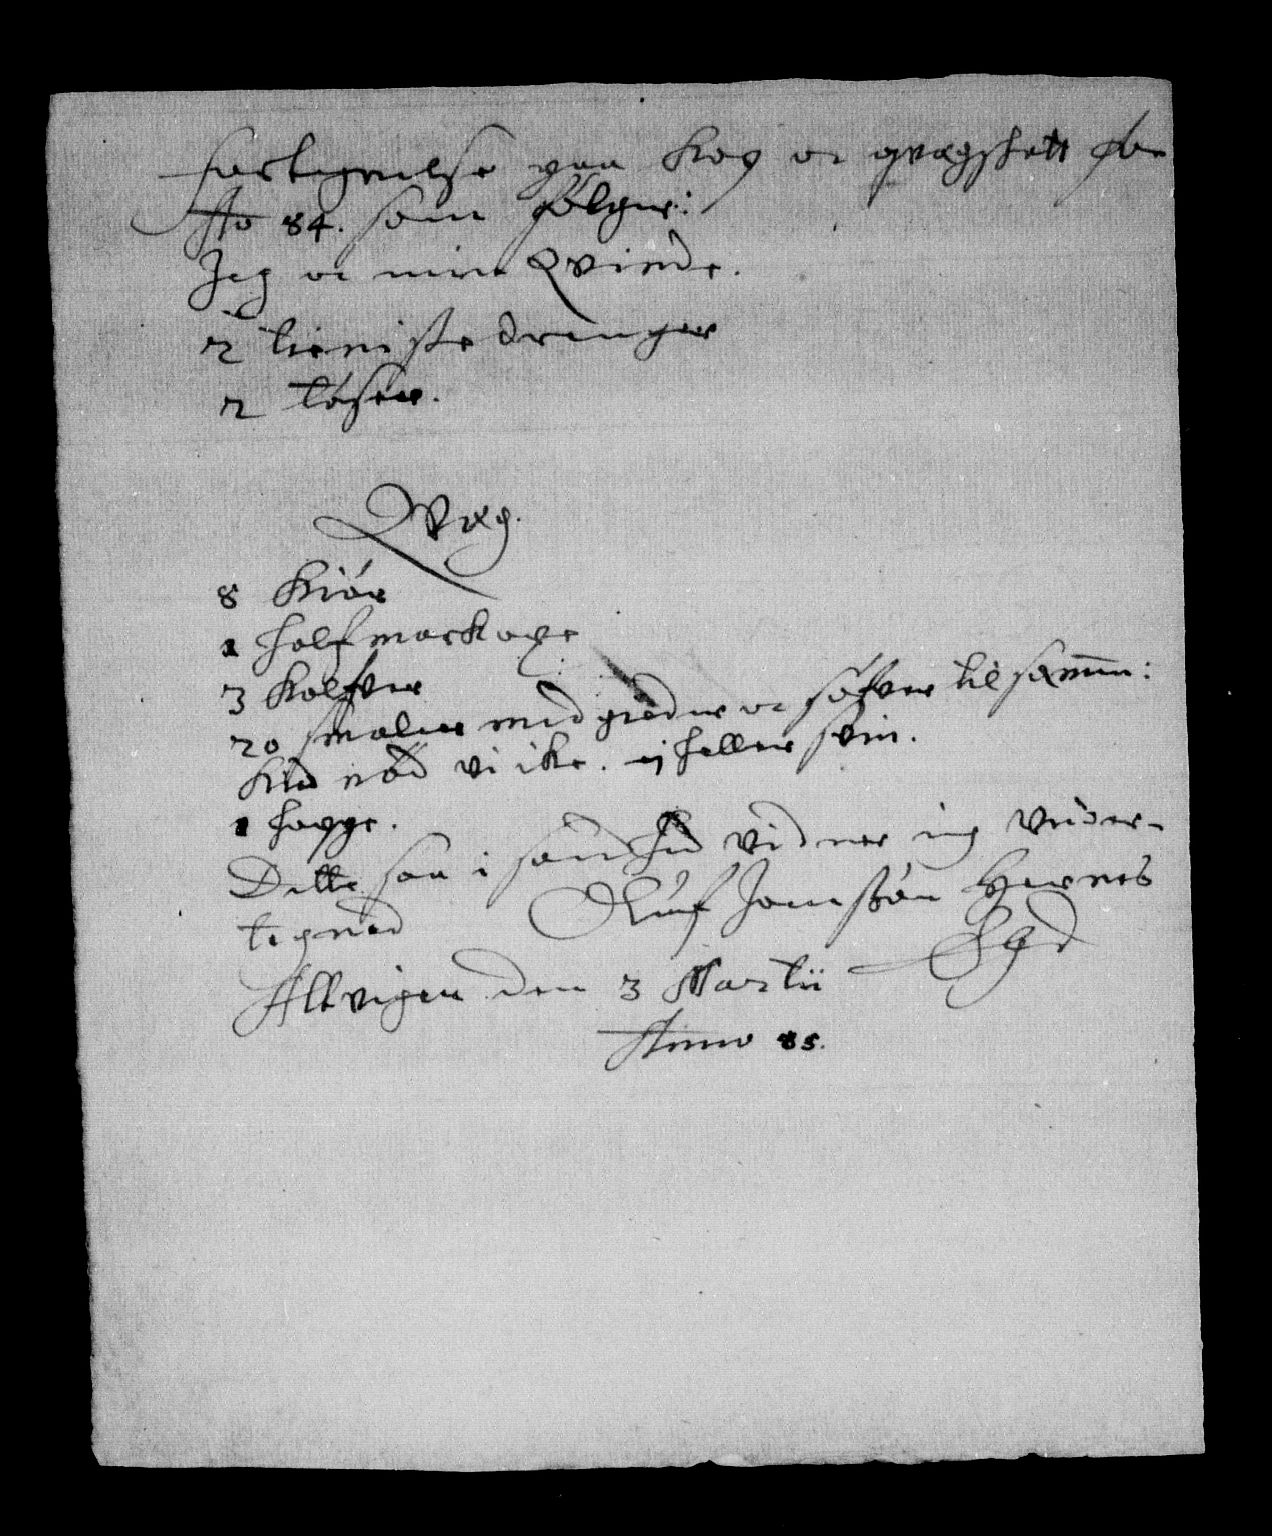 Fortegnelse paa Kop oc qvægskatt pro
Ao 84. som fölger:
Jeg oc min Qvinde.
2 tieniste drenger
2 töser.
Qvæg.
8 Kiör
1 halfmarkoxe
3 Kalfver
20 smaler med gieder oc söfver til samm:
Kid nöd vi ike. ej heller svin.
1 hoppe.
Dette saa i sandhed vidner ieg under-
tegned Oluf Jonssön Hernes
Altvigen den 3 Martii Egd
Anno 85.